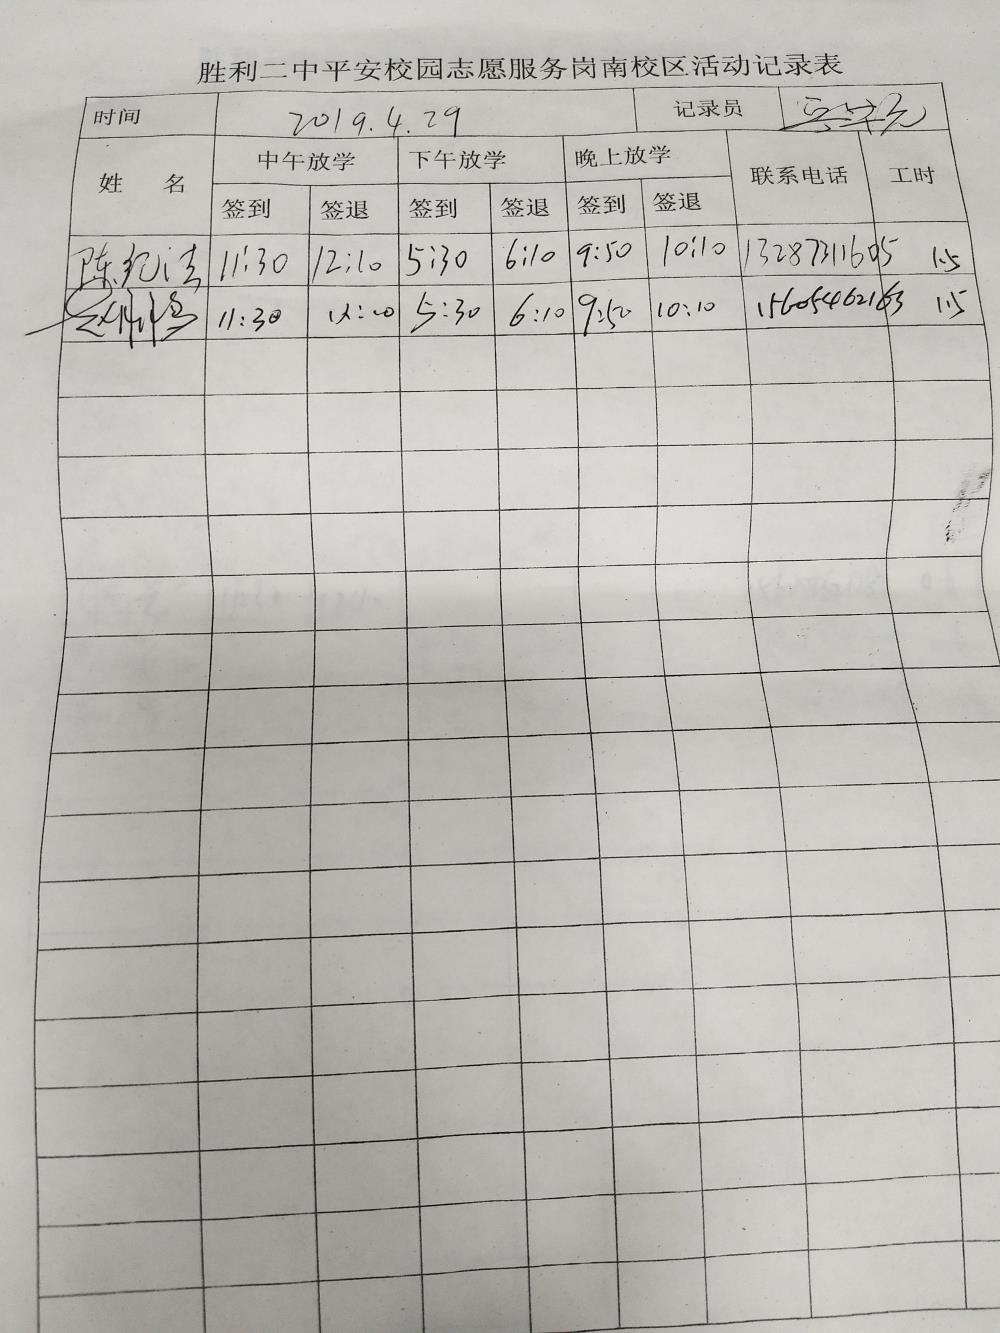 胜利二中平安校园志愿服务岗南校区活动记录表
时间 2019.4.29 记录员
姓 名 中午放学 下午放学 晚上放学 联系电话 工时
签到 签退 签到 签退 签到 签退
陈纪清 11:30 12:10 5:30 6:10 9:50 10:10 13287311605 1.5
11:30 12:10 5:30 6:10 9:50 10:10 15605462163 1.5